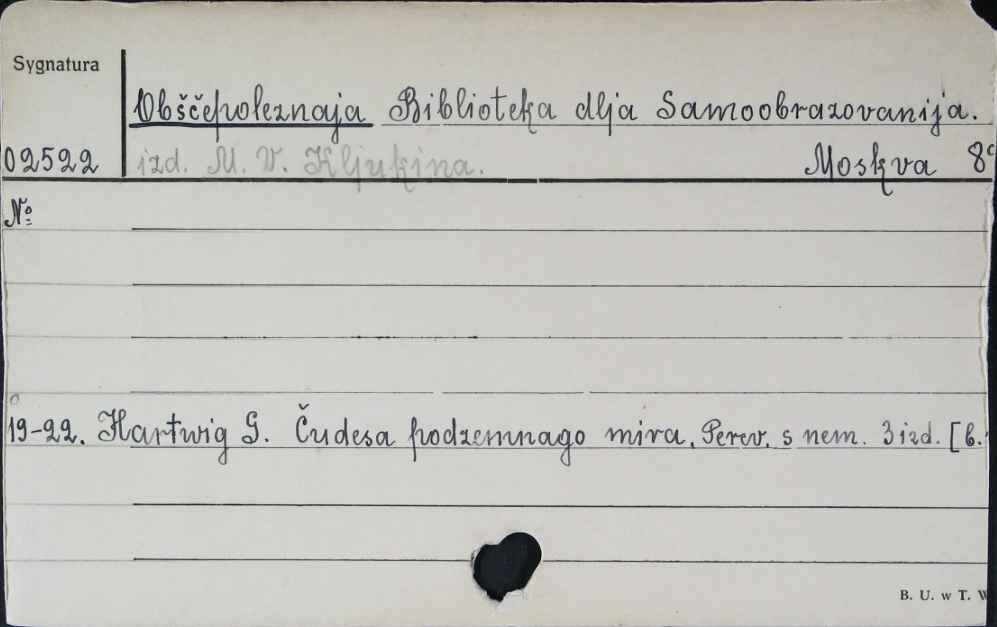 Sygnatura
Obščepoleznaja Biblioteka dlja Samoobrazovanija.
02522 izd. M. V. Kljukina. Moskva 8°
№
19-22. Hartwig G. Čudesa podzemnago mira. Perev. s nem. 3 izd. [b.
B. U. w T. W